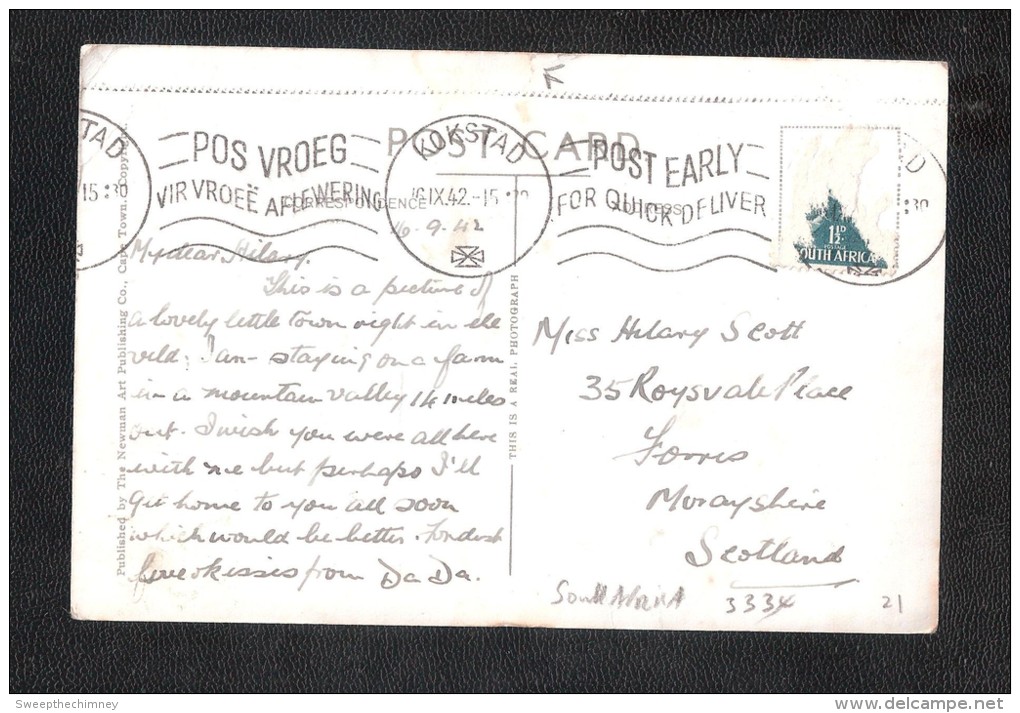 POST CARD
KOKSTAD
16 IX.42.-15:30
POS VROEG
VIR VROEË AFLEWERING
POST EARLY
FOR QUICK DELIVERY
TAD
15:30
D
:30
1½D
POSTAGE
SOUTH AFRICA
CORRESPONDENCE
ADDRESS
16.9.42
My dear Hilary.
This is a picture of
a lovely little town right in the
veld. I am staying on a farm
in a mountain valley 14 miles
out. I wish you were all here
with me but perhaps I'll
get home to you all soon
which would be better. Fondest
love & kisses from DaDa.
Miss Hilary Scott
35 Roysvale Place
Forres
Morayshire
Scotland
South Africa 3334 21
Published by The Newman Art Publishing Co., Cape Town. Copyright
THIS IS A REAL PHOTOGRAPH
Sweepthechimney
delcampe.net